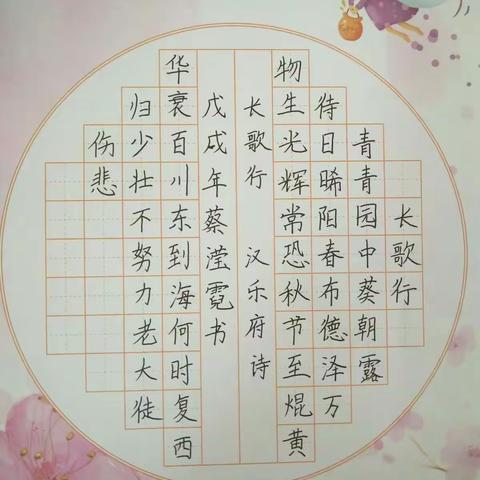 长歌行
青青园中葵朝露
待日晞阳春布德泽万
物生光辉常恐秋节至焜黄
长歌行 汉乐府诗
戊戌年蔡滢霓书
华衰百川东到海何时复西
归少壮不努力老大徒
伤悲